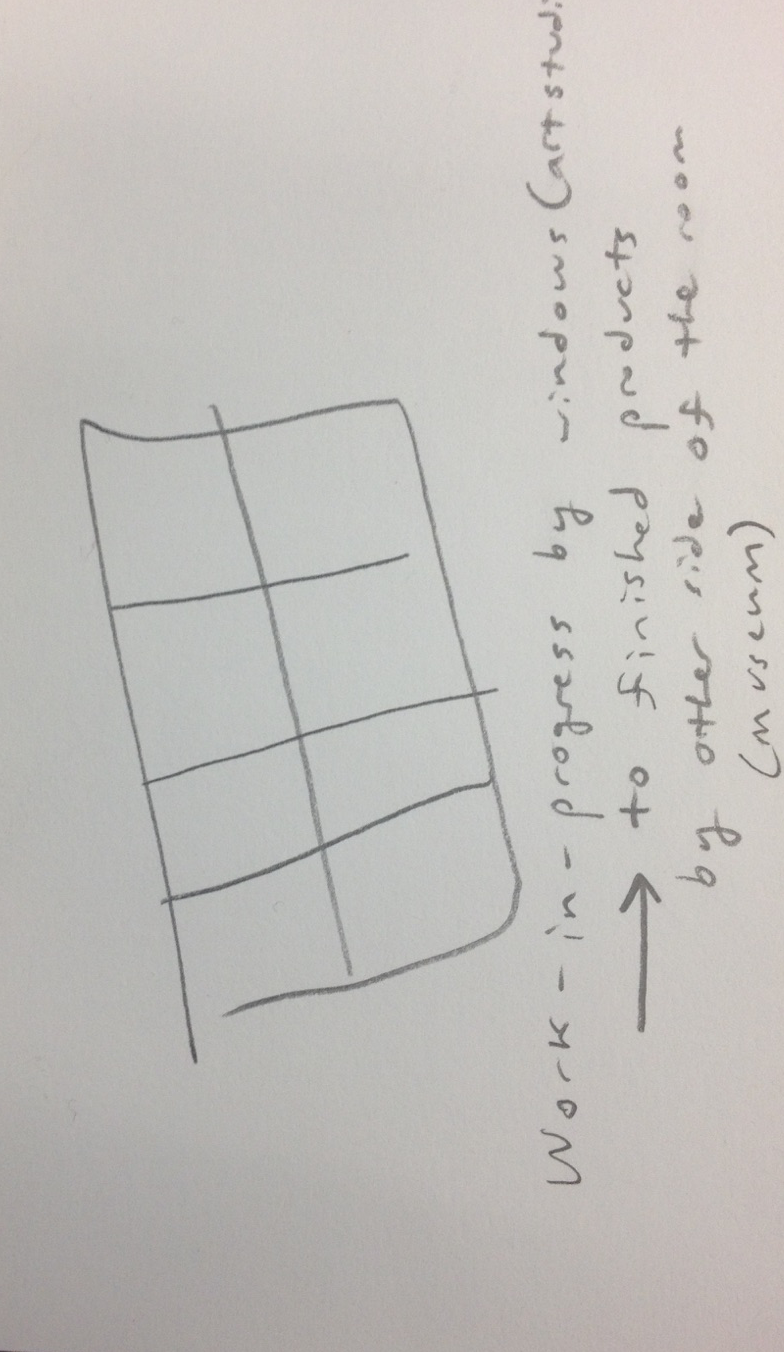 Work-in-progress by windows (art studi
→ to finished products
by other side of the room
(museum)